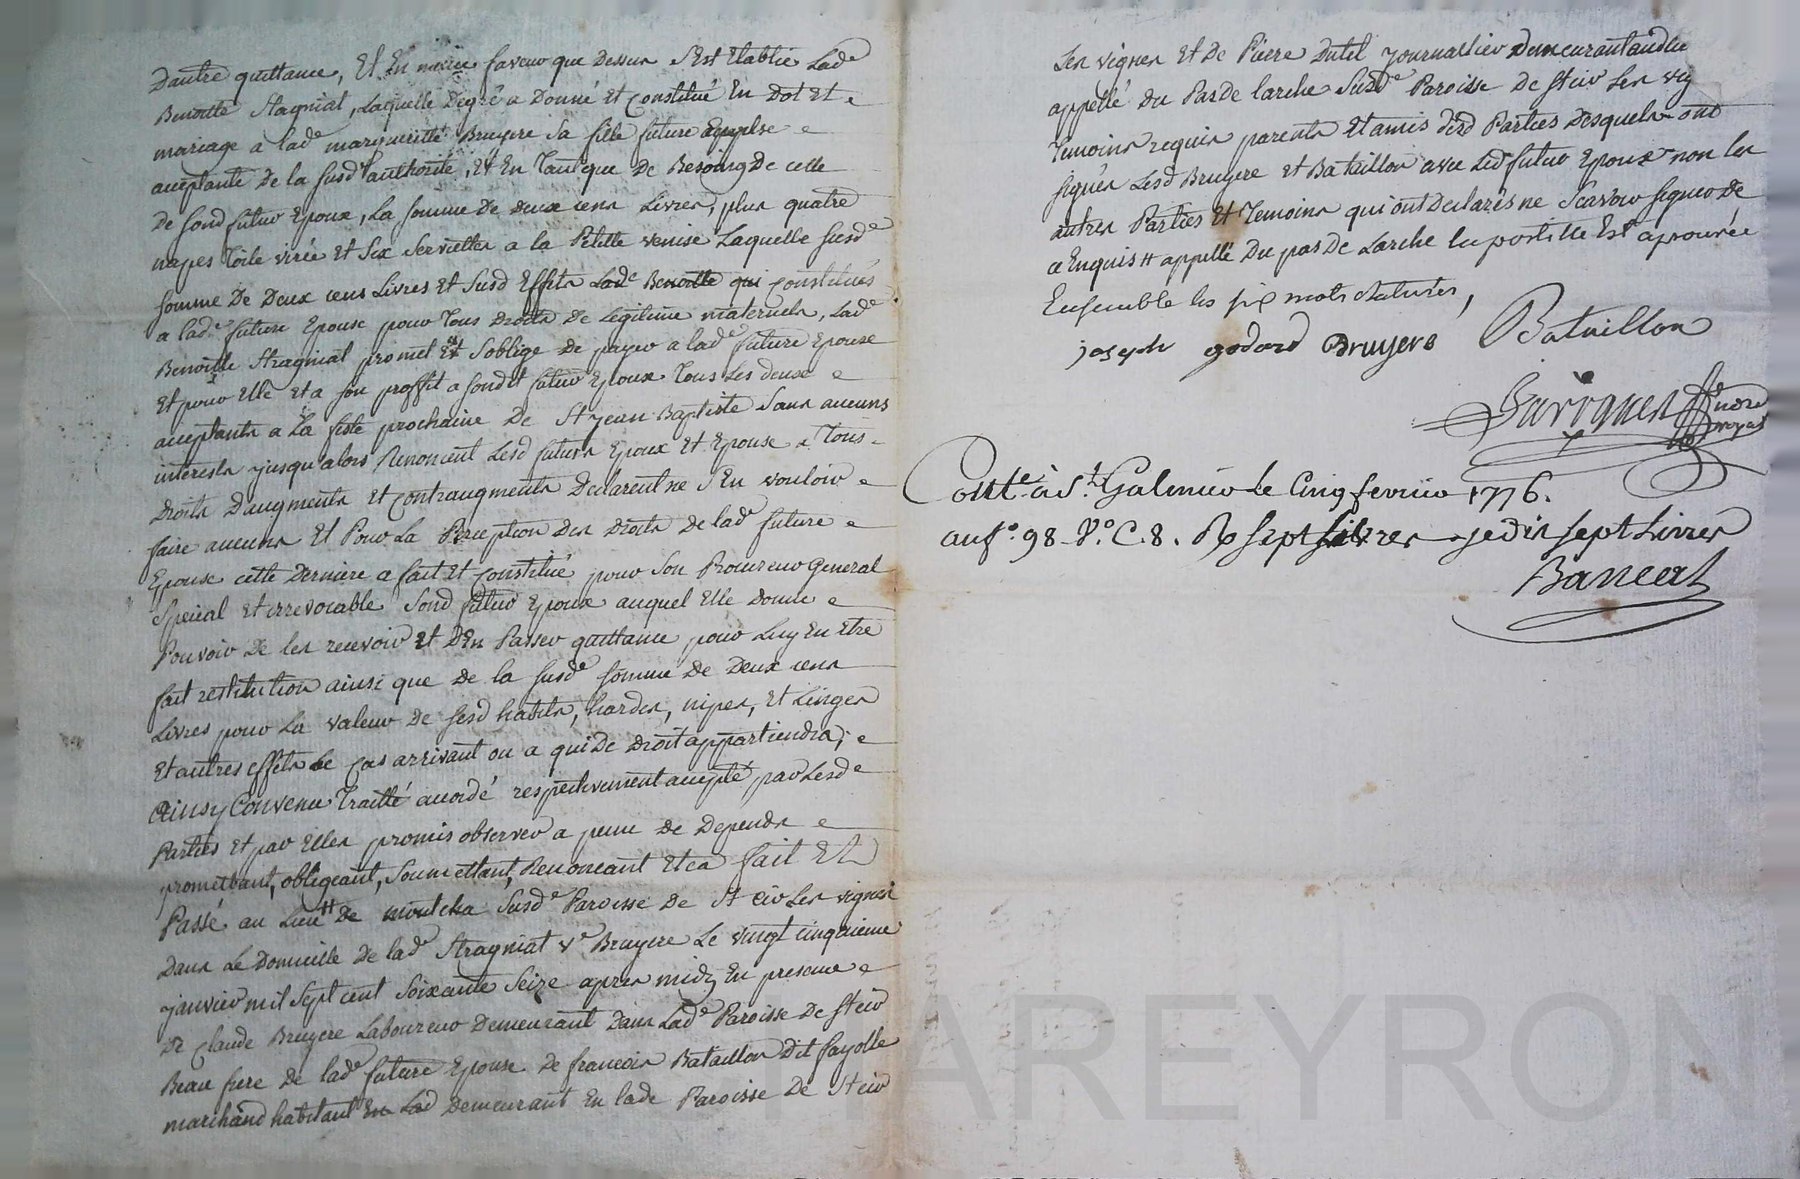 Dautre quittance, Et En mêsme faveur que Dessus S'Est Etablie Lade
Benoitte Stragniat, Laquelle Degré a Donné Et Constitué En Dot Et
mariage a lade margueritte Bruyere Sa fille future Epouse
acceptante De la Susdt authorité, Et En Tant que De Besoing De celle
De Sond futur Epoux, La Somme De deux cens Livres, plus quatre
napes Toile virée Et Six Serviettes a la Petitte venise Laquelle Susde
Somme De Deux cens Livres Et Susd Effets Lade Benoitte qui Constitués
a lade future Epouse pour Tous Droits De Legitime maternels, Lade
Benoitte Stragniat promet Et S'oblige De payer a lade future Epouse
Et pour Elle Et a son proffit a Sondt futur Epoux Tous Les deux
acceptants a La feste prochaine De St jean Baptiste Sans aucuns
interests jusqu'alors Renoncent Lesd futurs Epoux Et Epouse a Tous
Droits D'augments Et Contraugments Declarent ne S'En vouloir
faire aucuns Et Pour La Perception Des Droits De lade future
Epouse cette Derniere a fait Et Constitué pour Son Procureur General
Special Et irrevocable Sond futur Epoux auquel Elle Donne
Pouvoir De les recevoir Et D'En Passer quittance pour Luy En Etre
fait restitution ainsi que De la Susde Somme De Deux cens
Livres pour La valeur De Sesd habits, hardes, nipes, Et Linges
Et autres Effets Le Cas arrivant ou a qui De Droit appartiendra,
Ainsy Convenu Traitté accordé respectivement accepté par Lesde
Parties Et par Elles promis observer a peine De Depends
promettant, obligeant, Soumettant, Renonceant Etca fait Et
Passé au Lieu # de montcha Susde Paroisse De St Cir Les vignes
Dans Le Domicille De lade Stragniat ve Bruyere Le vingt cinquieme
janvier mil Sept cent Soixante Seize apres midy En presence
De Claude Bruyere Laboureur Demeurant Dans Lade Paroisse De St cir
Beau frere De lade future Epouse De francois Bataillon Dit fayolle
marchand habitant En Lad Demeurant En lade Paroisse De St cir
Les vignes Et De Pierre Dutel journallier Demeurant audlieu
appellé Du Pas De Larche Susde Paroisse De St cir Les vig
Temoins requis parents Et amis Desd Parties Desquels ont
Signés Lesd Bruyere Et Bataillon avec Led futur Epoux non Les
autres Parties Et Temoins qui ont Declarés ne Scavoir Signer De
ce Enquis # appellé Du pas De Larche la postille Est aprouvée
Ensemble les six mots raturés,
joseph godard Bruyere Bataillon
nore
royal
Contle à St Galmier Le Cinq fevrier 1776.
au fo. 98 Vo. C. 8. R Sept Livres je dis sept Livres
AREYRON